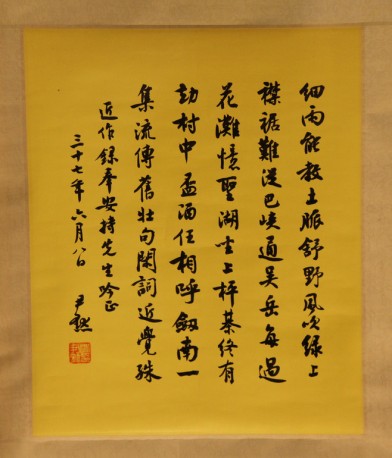 細雨能教土脈舒野風吹綠上
襟裾難從巴峽通吳岳每過
花灘憶聖湖坐上枰棊終有
劫村中盃酒任相呼劔南一
集流傳舊壯句閑詞近覺殊
近作錄奉安持先生吟正
三十七年六月八日
尹默